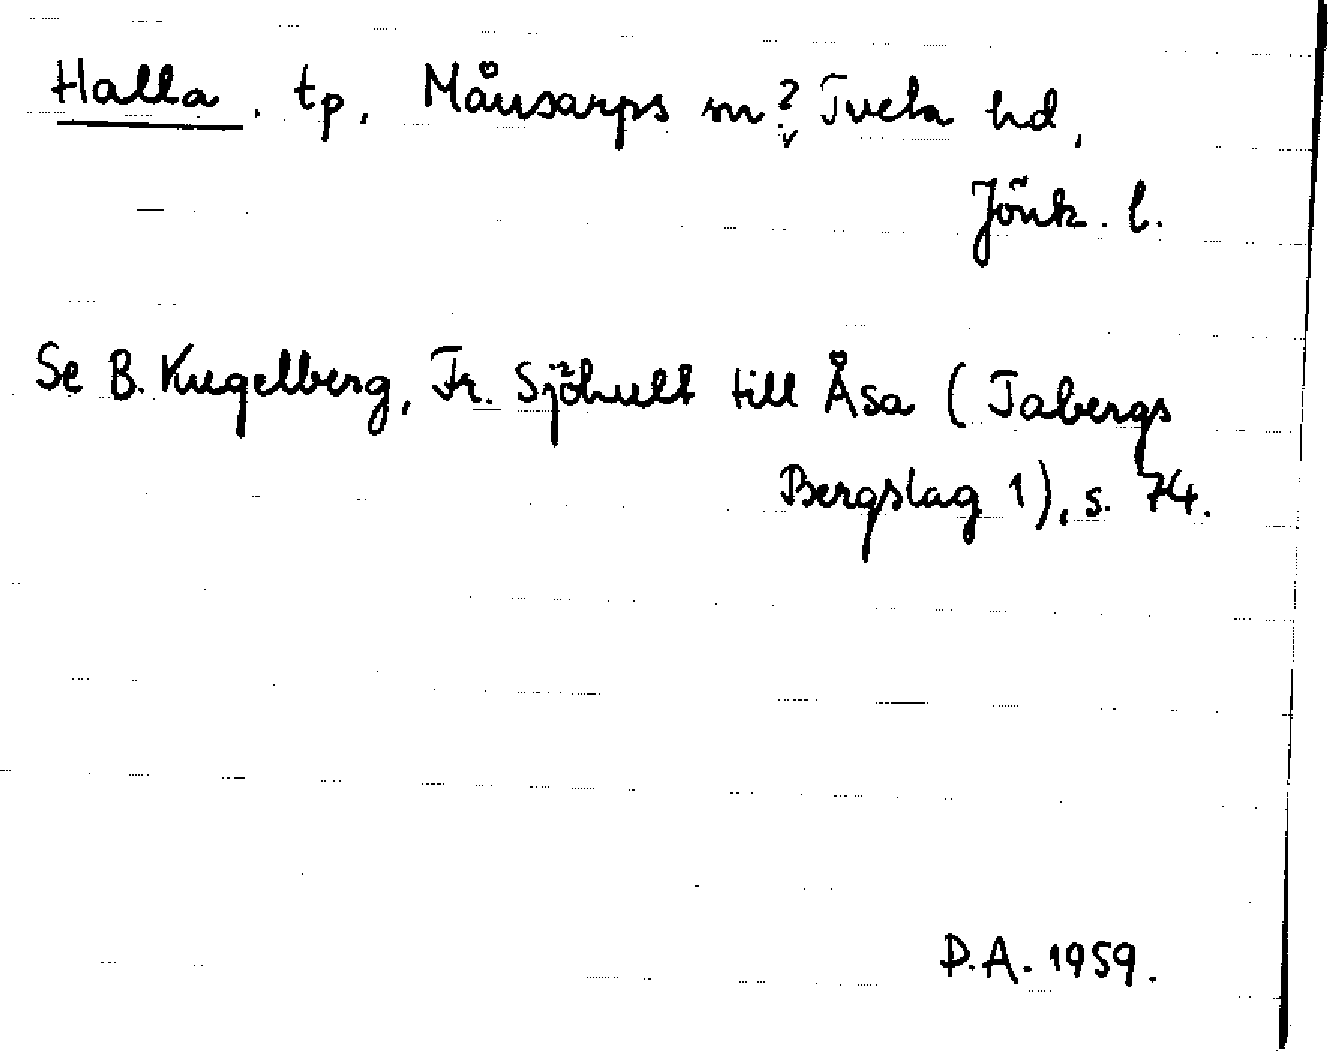 Halla. tp. Månsarps sn? Tveta hd,
Jönk. l.
Se B. Kugelberg, Fr. Sjöhult till Åsa (Tabergs
Bergslag 1), s. 74.
D.A. 1959.